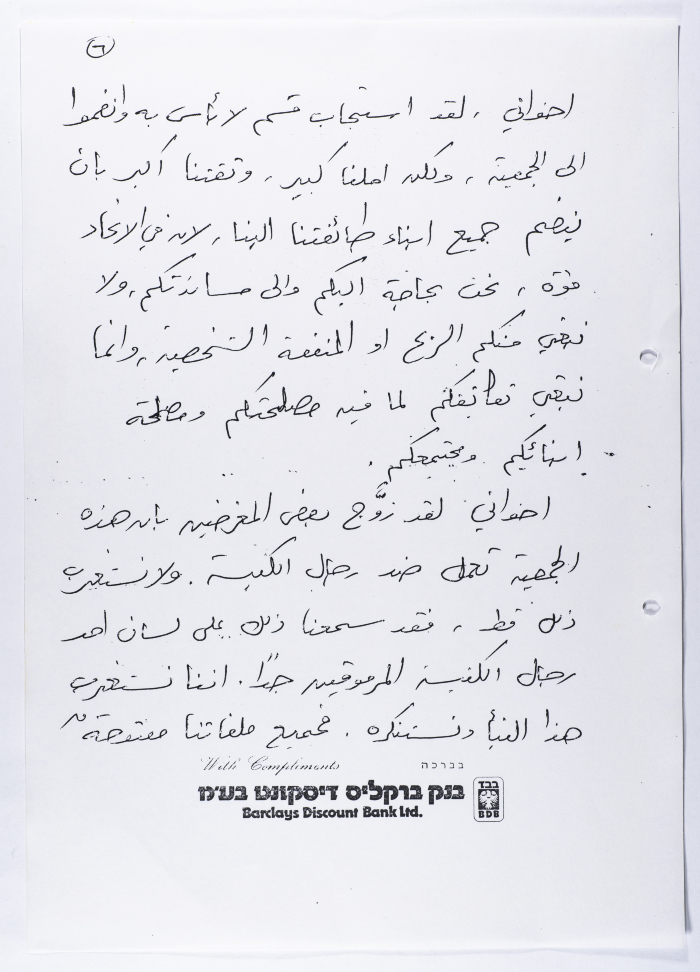 ٦
اخواني ، لقد استجاب قسم لا بأس به وانضموا
الى الجمعية ، ولكن املنا كبير ، وثقتنا اكبر بان
ينضم جميع ابناء طائفتنا الينا ، لان في الاتحاد
قوة ، نحن بحاجة اليكم والى مساندتكم ، ولا
نبغي منكم الربح او المنفعة الشخصية ، وانما
نبغي تعاطفكم لما فيه مصلحتكم ومصلحة
ابنائكم ومجتمعكم .
اخواني لقد زوَّج بعض المغرضين بان هذه
الجمعية تعمل ضد رجال الكنيسة . ولا نستغرب
ذلك قط ، فقد سمعنا ذلك على لسان احد
رجال الكنيسة المرموقين جدًا . اننا نستغرب
هذا النبأ ونستنكره . فجميع ملفاتنا مفتوحة
With Compliments בברכה
בנק ברקליס דיסקונט בע"מ
Barclays Discount Bank Ltd.
בבד
BDB